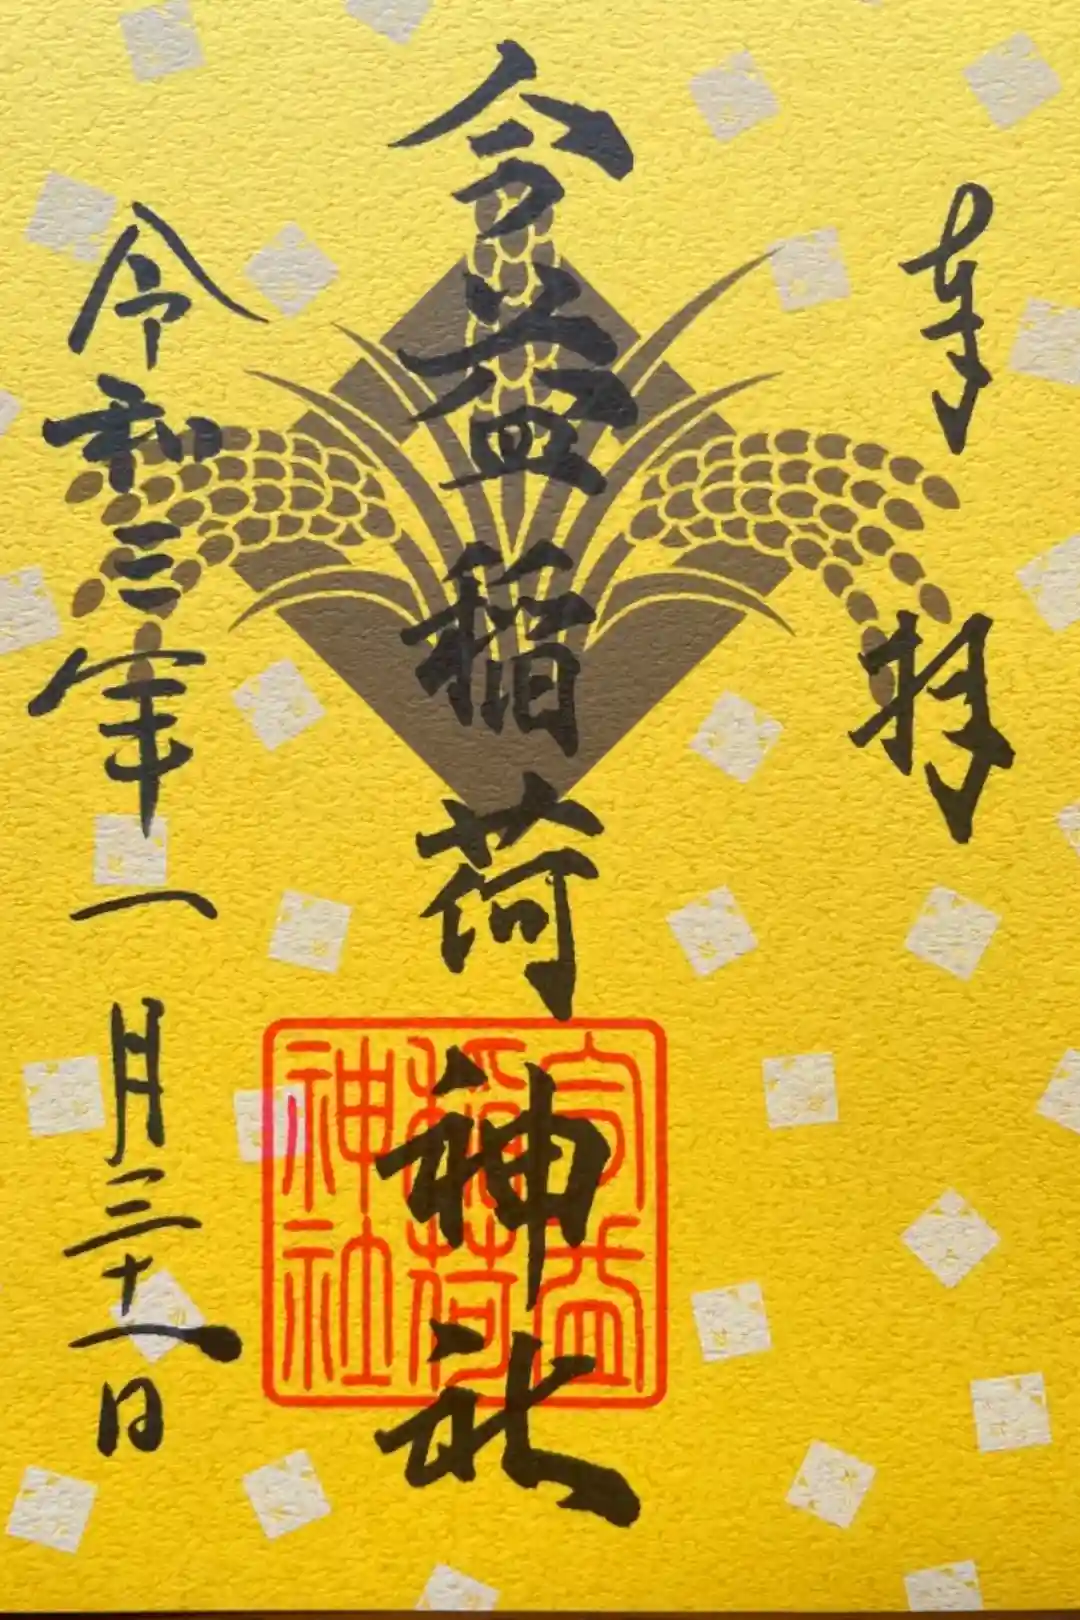 奉拝
今益稲荷神社
令和三年一月三十一日
稲荷
神社